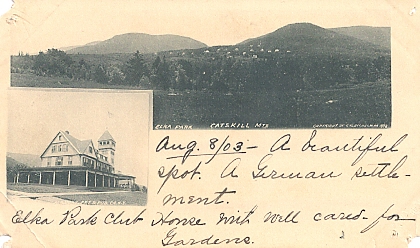 ELKA PARK CATSKILL MTS
Aug. 8/03 – A beautiful
spot. A German settle-
ment.
Elka Park Club House with well cared-for
Gardens.